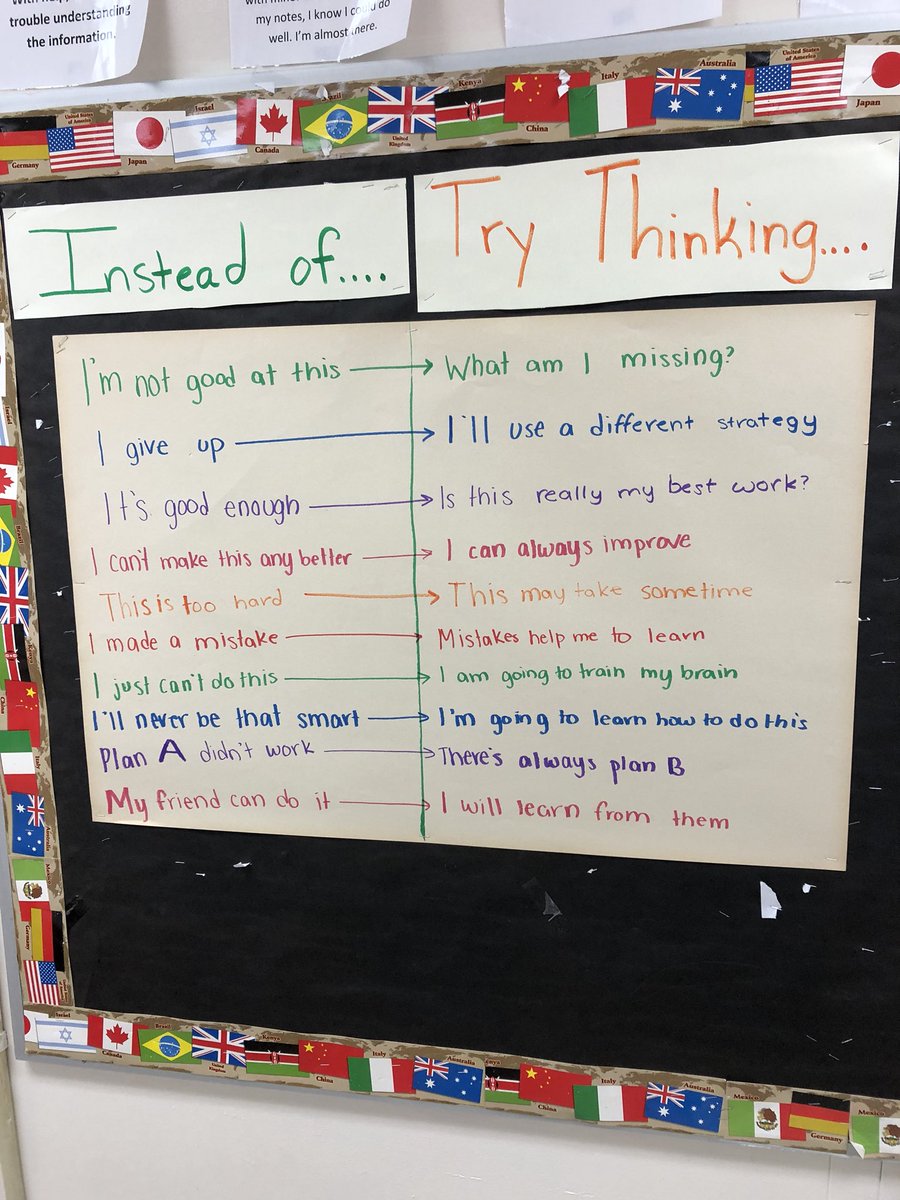 trouble understanding
the information.
my notes, I know I could do
well. I'm almost there.
Germany
United States of America
Japan
Israel
Canada
Brazil
United Kingdom
Kenya
China
Italy
Australia
United States of America
Japan
Instead of....
Try Thinking....
I'm not good at this → What am I missing?
I give up → I'll use a different strategy
It's good enough → Is this really my best work?
I can't make this any better → I can always improve
This is too hard → This may take sometime
I made a mistake → Mistakes help me to learn
I just can't do this → I am going to train my brain
I'll never be that smart → I'm going to learn how to do this
Plan A didn't work → There's always plan B
My friend can do it → I will learn from them
Israel
Canada
Brazil
United Kingdom
Kenya
China
Italy
Australia
Kenya
China
Italy
Australia
Mexico
Germany
Mexico